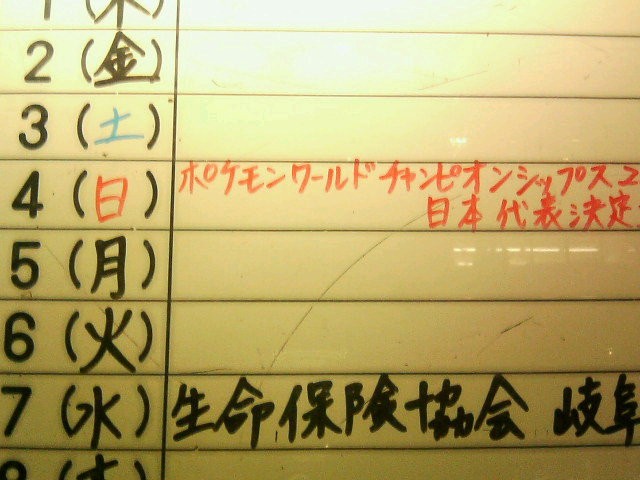 1(木)
2(金)
3(土)
4(日) ポケモンワールドチャンピオンシップス
日本代表決定
5(月)
6(火)
7(水) 生命保険協会 岐阜
8(木)